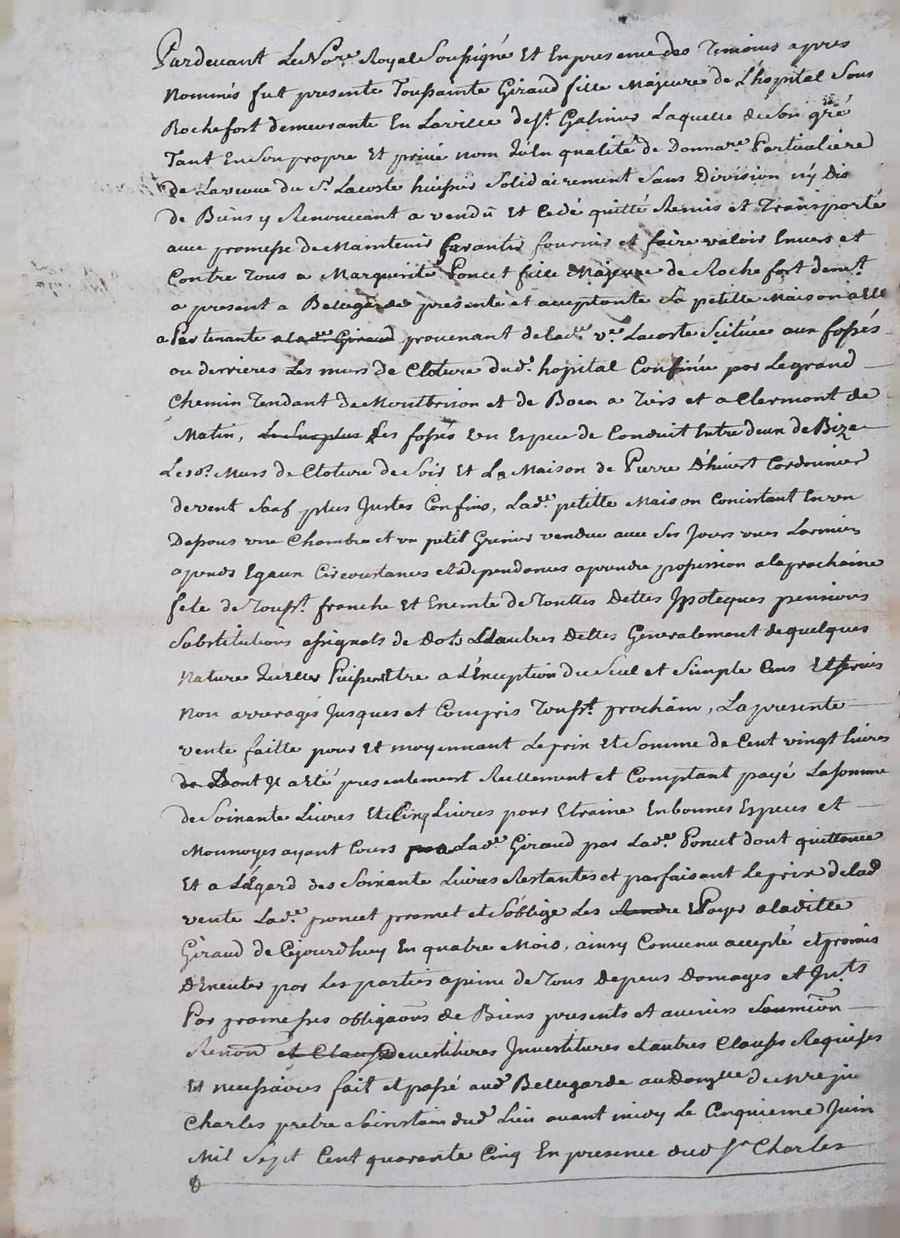 Pardevant Le No.re Royal Soussigné Et En presence des Temoins apres
Nommés fut presente Toussainte Giraud fille Majeure de L'hopital Sous
Rochefort demeurante En La ville de St. Galmier Laquelle de son gré
Tant En Son propre Et privé nom qu'en qualité de Donnare. Particuliere
de La veuve du Sr. Lacoste huissier Solidairement Sans Division ny Dis
de Biens y Renoncant a vendu Et Cedé quitté Remis et Transporté
avec promesse de Maintenir Garantir fournir et faire valoir Envers et
Contre Tous a Marguerite Poncet fille Majeure de Rochefort demt.
a present a Bellegarde presente et acceptante Sa petitte Maison a Elle
aPartenante a lade. Giraud provenant de lade. ve. Lacoste Scituée aux fossés
ou derrieres Les murs de Cloture dud. hopital Confinée par Le grand
Chemin Tendant de Montbrison et de Boen a Tiers et a Clermont de
Matin, Le Surplus Les fossés En Espece de Conduit Entre deux de Bize
Lesd. Murs de Cloture de Soir Et La Maison de Pierre D'huiert Cordonnier
de vent Sauf plus Justes Confins, Lade. petitte Maison Concistant En un
Dessous une Chambre et un petit Grenier vendue avec Ses Jours vues Larmiers
apends Egaux Circonstances et dependances a prendre possession a la prochaine
fete de Toust. franche Et Exemte de Touttes Dettes Ipoteques pensions
Substitutions assignats de Dots Et autres Dettes Generalement de quelques
Nature qu'elles Puissent Etre a L'Exception du Seul et Simple Cens Et Servis
Non arreragés Jusques et Compris Toust. prochain, La presente
vente faitte pour Et moyennant Le prix Et Somme de Cent vingt Livres
de Dont Il a Eté presentement Reellement et Comptant payé La somme
de Soixante Livres Et Cinq Livres pour Etraine En bonnes Especes et
Monnoyes ayant Cours a Lade. Giraud par Lade. Poncet dont quittance
Et a L'égard des Soixante Livres Restantes et parfaisant Le prix de lad
vente Lade. poncet promet et S'oblige Les Rendre Et Payer a laditte
Giraud de Cejourd'huy En quatre Mois, ainsy Convenu accepté et promis
D'Executer par Les parties a peine de Tous Depens Domages et Intts
Par promesses obligaõns de Biens presents et avenirs Soumiõn
Renonõn et Clauses devestitures Investitures et autres Clauses Requises
Et necessaires fait et passé aud. Bellegarde au Domlle de Mre
Charles pretre dud. Lieu avant midy Le Cinquieme Juin
Mil Sept Cent quarante Cinq En presence dud Sr. Charles